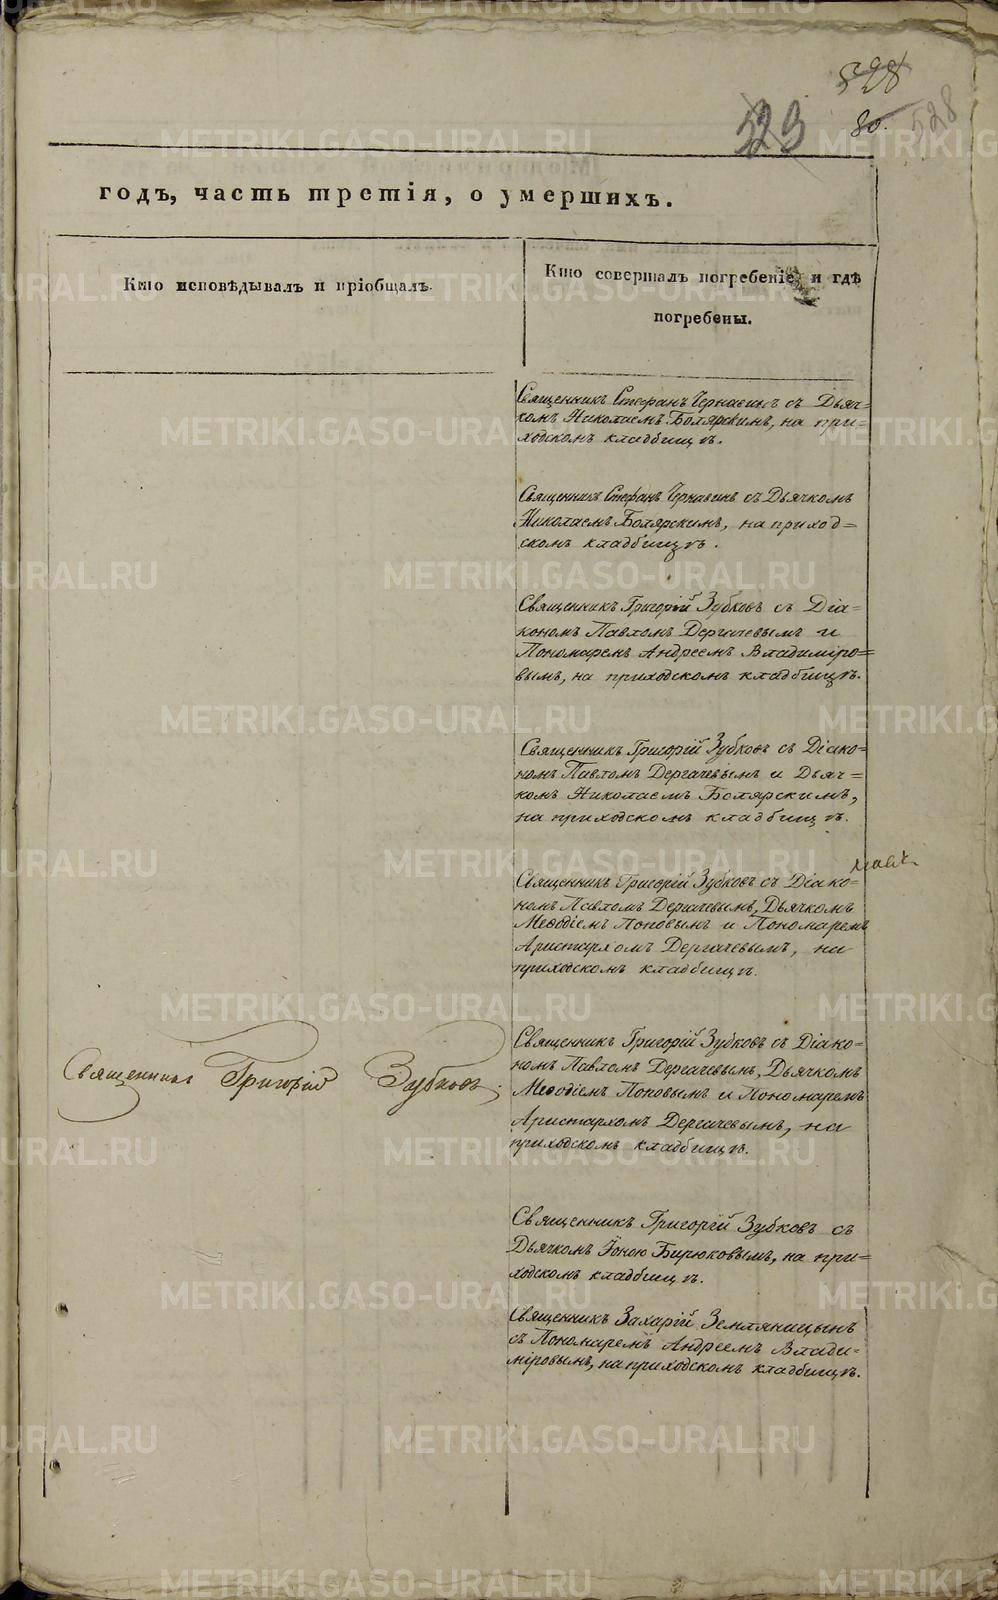 528
523
80.
528
годъ, часть третія, о умершихъ.
Кто исповѣдывалъ и пріобщалъ.
Кто совершалъ погребеніе, и гдѣ
погребены.
Священникъ Стефанъ Чернавинъ съ Дьяч=
комъ Николаемъ Болярскимъ, на при=
ходскомъ кладбищѣ.
Священникъ Стефанъ Чернавинъ съ Дьячкомъ
Николаемъ Болярскимъ, на приход=
скомъ кладбищѣ.
Священникъ Григорій Зубковъ съ Діа=
кономъ Павломъ Дергачевымъ и
Пономаремъ Андреемъ Владиміро=
вымъ, на приходскомъ кладбищѣ.
Священникъ Григорій Зубковъ съ Діако=
номъ Павломъ Дергачевымъ и Дьяч=
комъ Николаемъ Болярскимъ,
на приходскомъ кладбищѣ.
Священникъ Григорій Зубковъ съ Діако=
номъ Павломъ Дергачевымъ, Дьячкомъ
Меѳодіемъ Поповымъ и Пономаремъ
Аристархомъ Дергачевымъ, на
приходскомъ кладбищѣ.
Священникъ Григорій Зубковъ съ Діако=
номъ Павломъ Дергачевымъ, Дьячкомъ
Меѳодіемъ Поповымъ и Пономаремъ
Аристархомъ Дергачевымъ, на
приходскомъ кладбищѣ.
Священникъ Григорій Зубковъ.
Священникъ Григорій Зубковъ съ
Дьячкомъ Іоною Бирюковымъ, на при=
ходскомъ кладбищѣ.
Священникъ Захарій Земляницынъ
съ Пономаремъ Андреемъ Влади=
міровымъ, на приходскомъ кладбищѣ.
METRIKI.GASO-URAL.RU